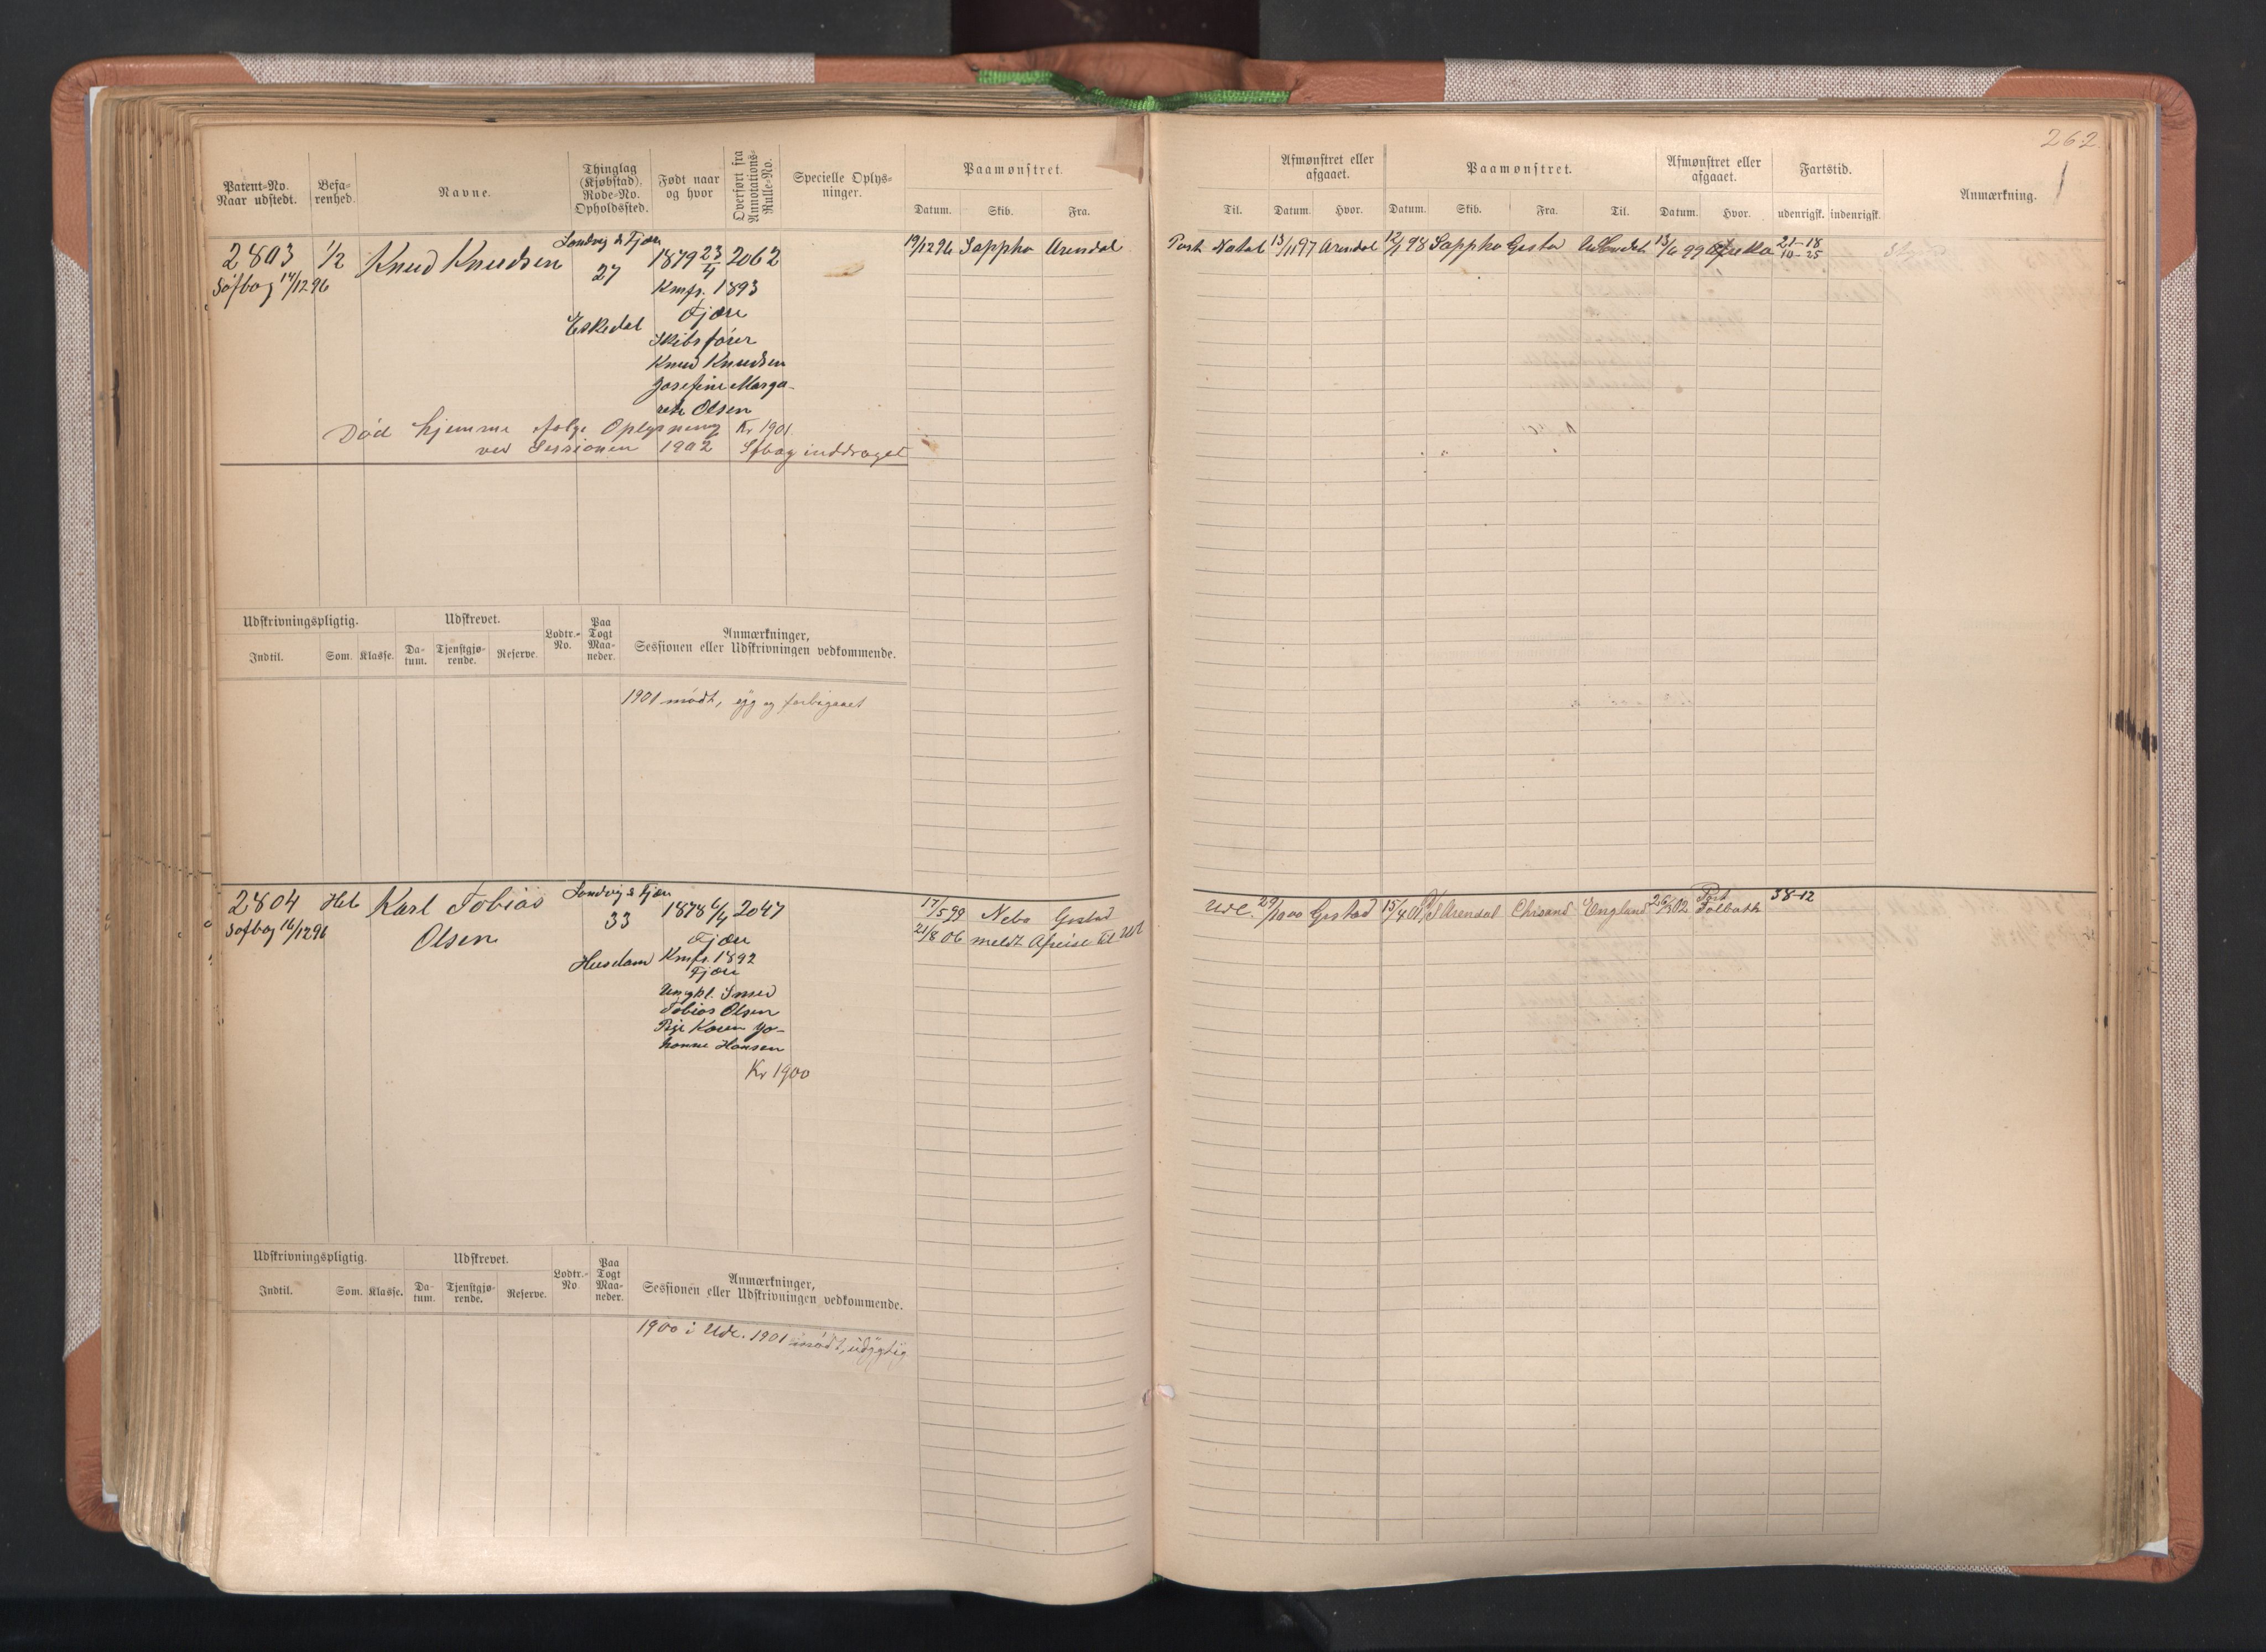 262
Patent-No. Naar udstedt.
Befa-renhed.
Navne.
Thinglag (Kjøbstad), Rode-No. Opholdssted.
Født naar og hvor
Overført fra Annotations-Rulle-No.
Specielle Oplys-ninger.
Paamønstret.
Datum. Skib. Fra.
Til.
Afmønstret eller afgaaet.
Datum. Hvor.
Paamønstret.
Datum. Skib. Fra. Til.
Afmønstret eller afgaaet.
Datum. Hvor.
Fartstid.
udenrigsk. indenrigsk.
Anmærkning.
2803 1/2 Knud Knudsen Landvig & Fjære 1879 23/4 2062 19/12 96 Sappho Arendal Port Natal 13/11 97 Arendal 12/1 98 Sappho Gesta 13/6 99 21-18
Søfbog 14/12 96 27 10-25
Kmfr. 1893
Eskedal Fjære
Skibsfører
Knud Knudsen
Josefine Marga-
rete Olsen
Død hjemme ifølge Oplysning Kr 1901
ved Sessionen 1902 Sfbog inddraget
Udskrivningspligtig.
Indtil. Som. Klasse.
Udskrevet.
Da-tum. Tjenstgjø-rende. Reserve.
Lodtr.-No.
Paa Togt Maa-neder.
Anmærkninger,
Sessionen eller Udskrivningen vedkommende.
1901 mødt, syg og forbigaaet
2804 Hel Karl Tobias Landvig & Fjære 1878 6/4 2047 17/5 99 Nebo Gestad Udl. 29/10 00 Gestad 15/4 01 D/S Arendal Chrsand England 26/3 02 Port Talboth 38-12
Søfbog 16/12 96 Olsen 33 Fjære 21/8 06 meldt Afreise til Udl
Husdam Kmfr. 1892
Fjære
Ungkl. Smed
Tobias Olsen
Pige Karen Jo-
hanne Hansen
Kr 1900
Udskrivningspligtig.
Indtil. Som. Klasse.
Udskrevet.
Da-tum. Tjenstgjø-rende. Reserve.
Lodtr.-No
Paa Togt Maa-neder.
Anmærkninger,
Sessionen eller Udskrivningen vedkommende.
1900 i Udl. 1901 mødt, udygtig